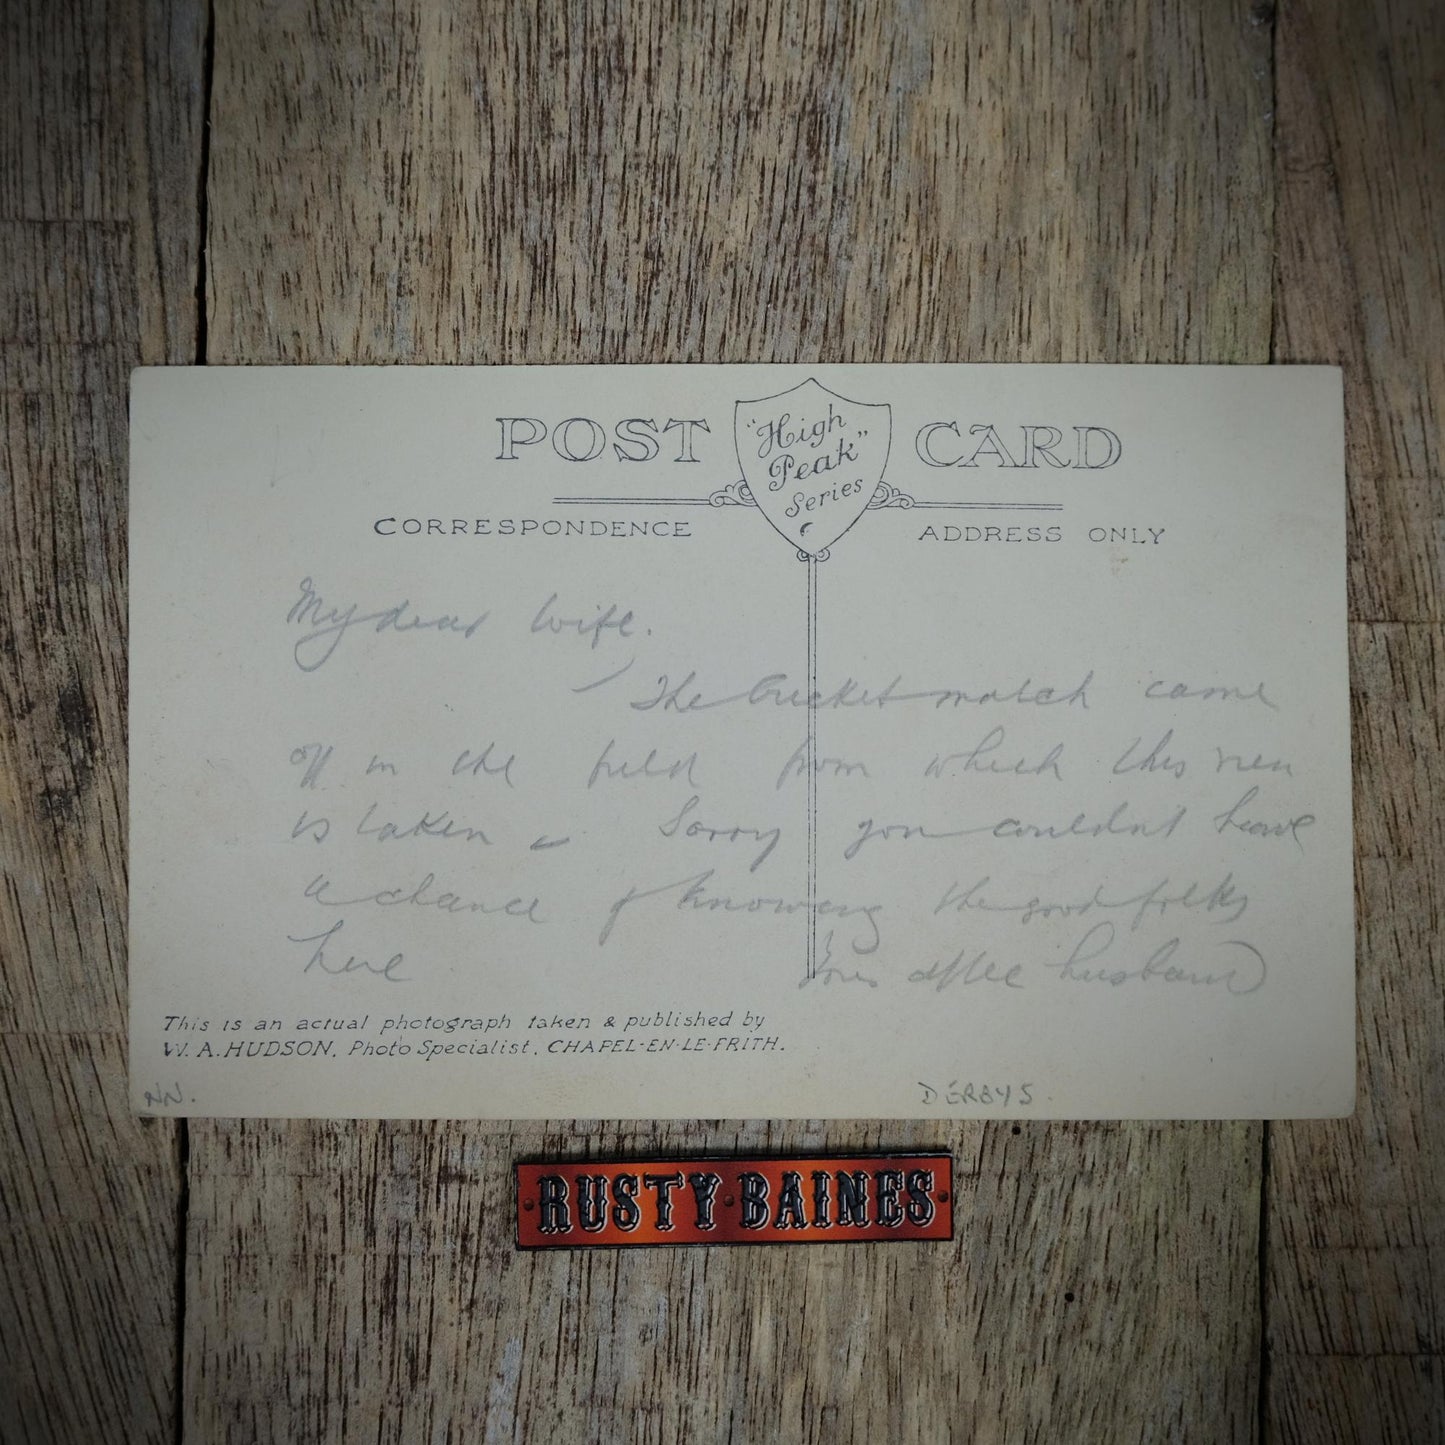 POST CARD
"High
Peak"
Series
CORRESPONDENCE
ADDRESS ONLY
My dear Wife.
The Cricket match came
off in the field from which this view
is taken. Sorry you couldn't have
a chance of knowing the good folks
here
Your affec husband
This is an actual photograph taken & published by
W. A. HUDSON. Photo Specialist. CHAPEL-EN-LE-FRITH.
NN.
DERBYS.
RUSTY·BAINES